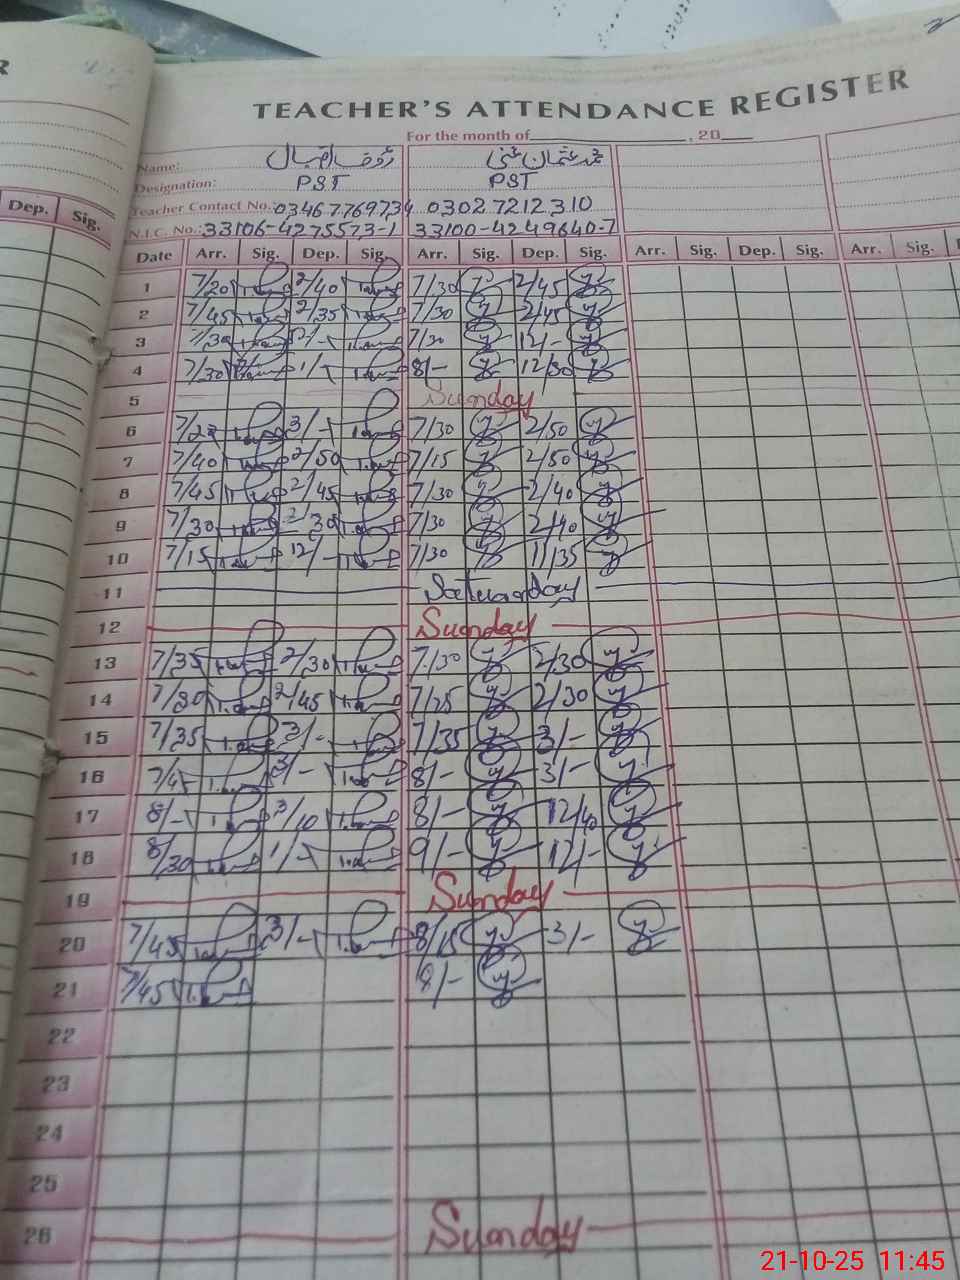 TEACHER'S ATTENDANCE REGISTER
For the month of , 20
Name: محمد عثمان غنی
Designation: PST PST
Teacher Contact No.: 03467769734 03027212310
N.I.C. No.: 33106-4275573-1 33100-4249640-7
Dep. Sig.
Date Arr. Sig. Dep. Sig. Arr. Sig. Dep. Sig. Arr. Sig. Dep. Sig. Arr. Sig.
1 7/20 2/40 7/30 2/45
2 7/45 2/35 7/30 2/45
3 7/30 7/30 12/-
4 7/30 1/- 8/- 12/30
5 Sunday
6 3/- 7/30 2/50
7 7/40 2/50 7/15 2/50
8 7/45 2/45 7/30 2/40
9 7/30 2/30 7/30 2/40
10 7/15 12/- 7/30 11/35
11 Saturday
12 Sunday
13 7/35 2/30 7/30 2/30
14 7/30 2/45 7/25 2/30
15 7/35 3/- 7/35 3/-
16 3/- 8/- 3/-
17 8/- 3/10 8/- 12/40
18 8/30 1/- 9/- 12/-
19 Sunday
20 7/45 3/- 8/15 3/-
21 7/45 8/-
22
23
24
25
26 Sunday
21-10-25 11:45